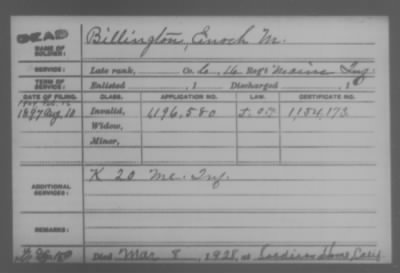 DEAD
NAME OF SOLDIER: Billington, Enoch M.
SERVICE: Late rank, Co. G, 16 Reg't Maine Inf.
TERM OF SERVICE: Enlisted , 1 Discharged , 1
DATE OF FILING. CLASS. APPLICATION NO. LAW. CERTIFICATE NO.
1897 Aug. 10 Invalid, 1,154,173
Widow,
Minor,
ADDITIONAL SERVICES: K 20 Me. Inf.
REMARKS:
Died Mar 8, 1928, at Soldiers Home, Calif